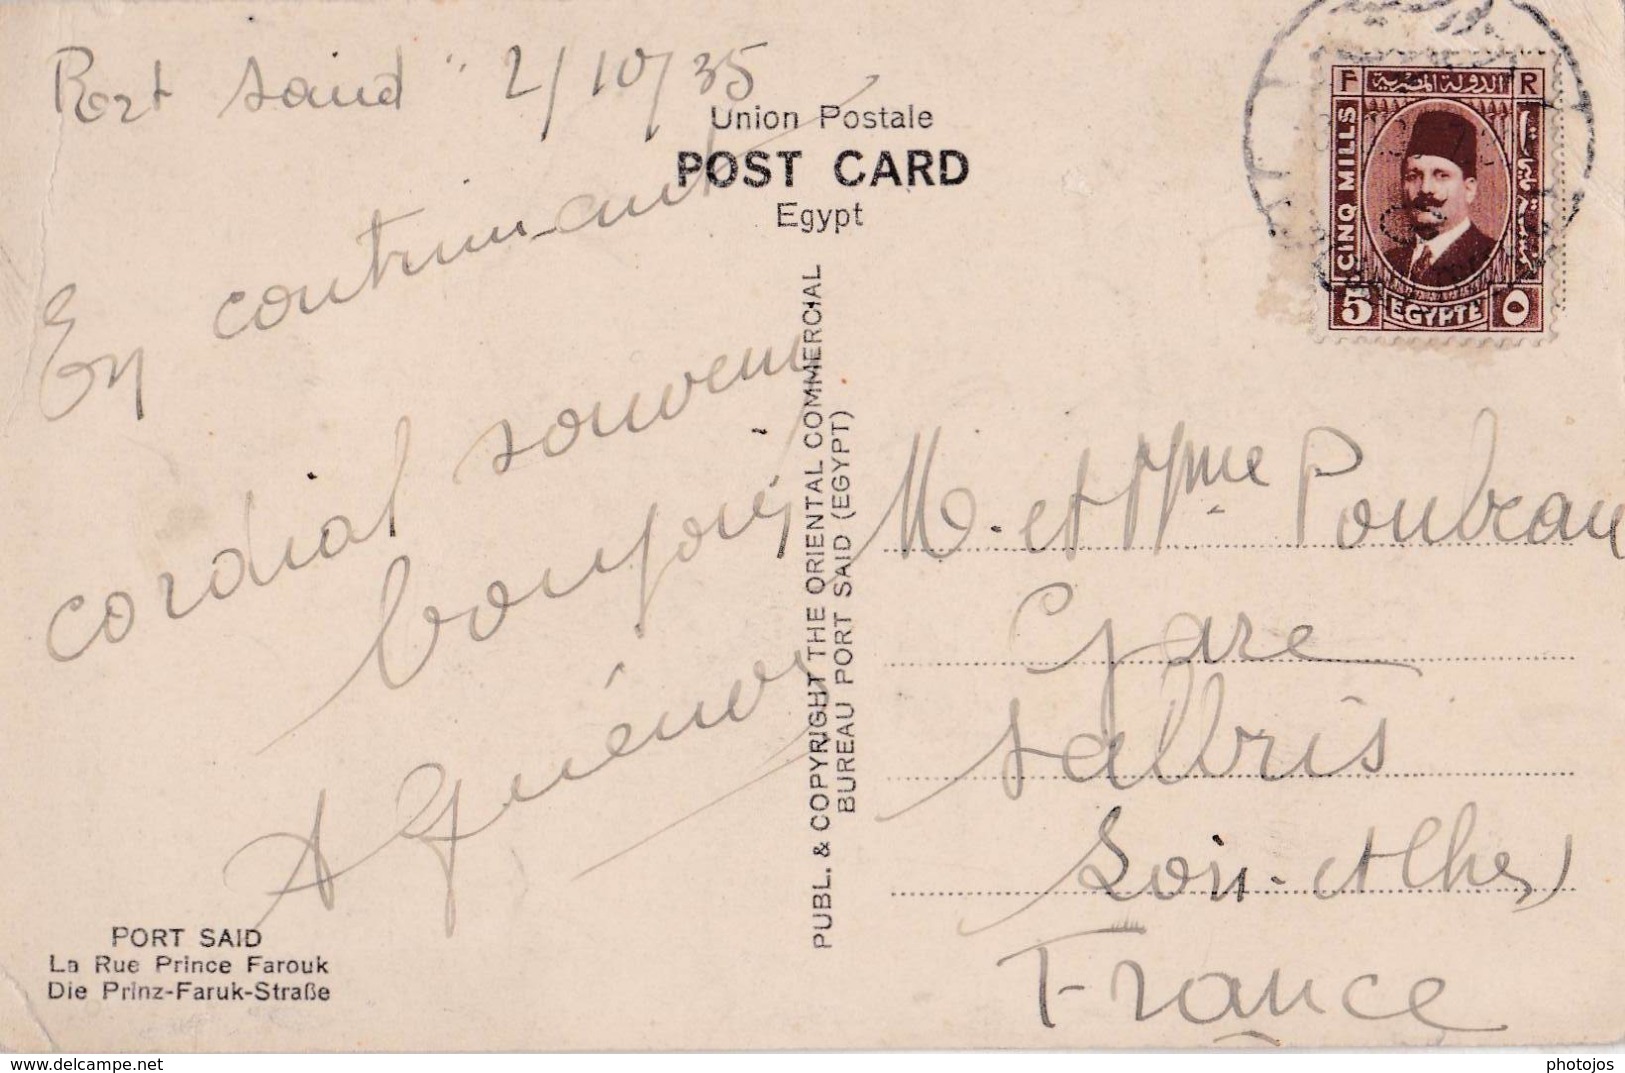 Port Said 2/10/35
Union Postale
POST CARD
Egypt
En continuant
cordial souvenir
bonjour
A Guénot
PORT SAID
La Rue Prince Farouk
Die Prinz-Faruk-Straße
PUBL. & COPYRIGHT THE ORIENTAL COMMERCIAL
BUREAU PORT SAID (EGYPT)
F الدولة المصرية R
CINQ MILLS
خمسة مليمات
5 EGYPTE ٥
M. et Mme Poubeau
Gare
Salbris
Loir-et Cher
France
delcampe.net
photojos